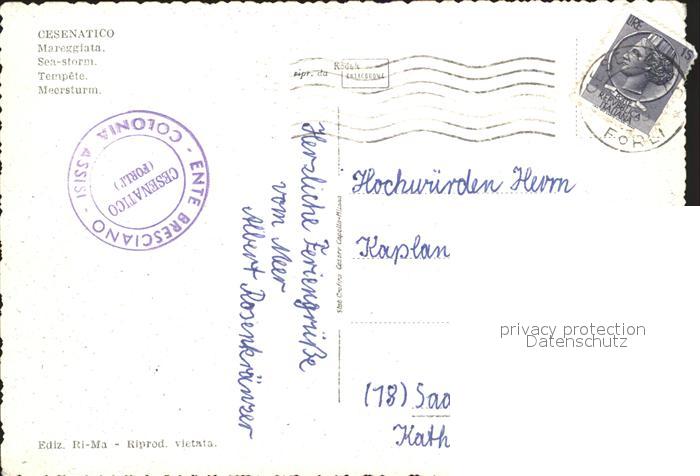 CESENATICO
Mareggiata.
Sea-storm.
Tempête.
Meersturm.
ENTE BRESCIANO - COLONIA ASSISI -
CESENATICO
(FORLI')
Herzliche Feriengrüße
vom Meer
Albert Rosenkränzer
ripr. da
LIRE 15
ITALIANA
FORLI
Hochwürden Herrn
Kaplan
privacy protection
Datenschutz
(18) Sao
Kath
Ediz. Ri-Ma - Riprod. vietata.